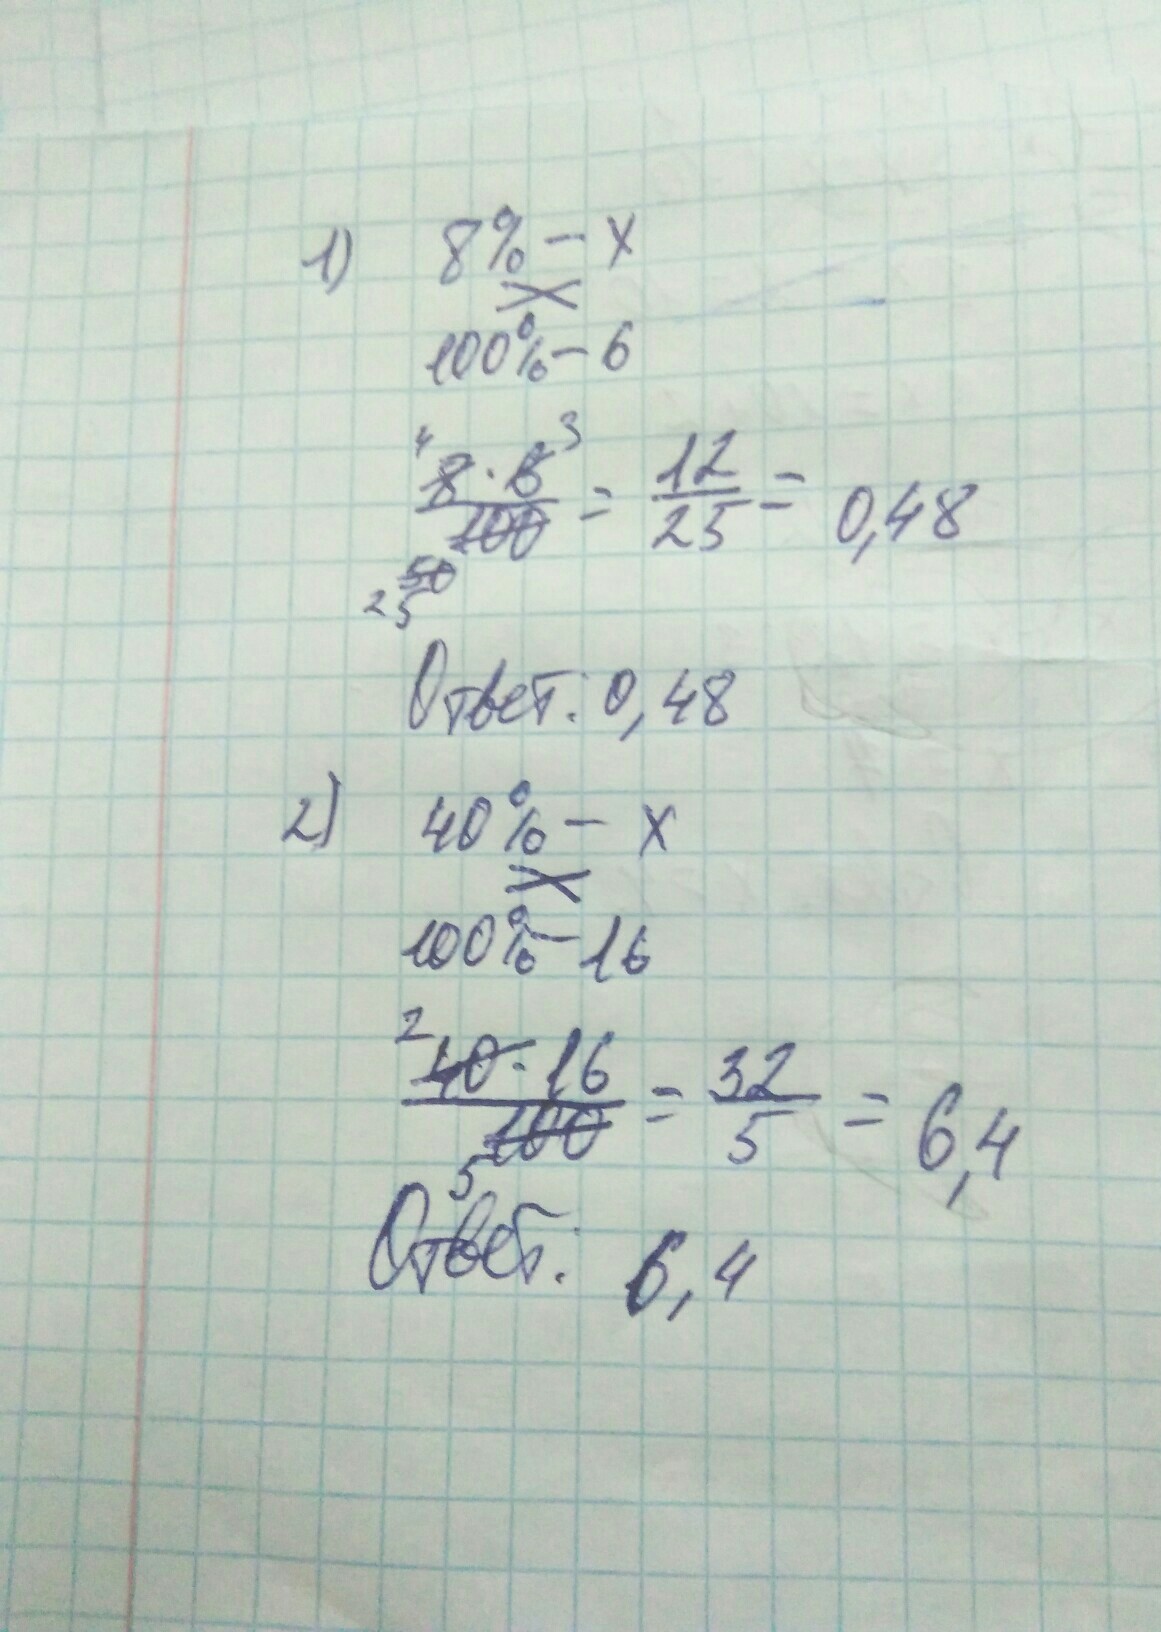 1) 8% – x
100% – 6
4 8 · 6 3 / 100 = 12/25 = 0,48
50
25
Ответ: 0,48
2) 40% – x
100% – 16
2 40 · 16 / 100 5 = 32/5 = 6,4
Ответ: 6,4